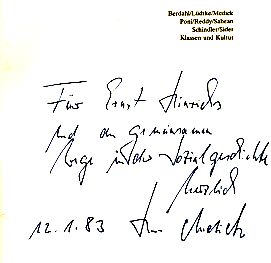 Berdahl/Lüdtke/Medick
Poni/Reddy/Sabean
Schindler/Sider
Klassen und Kultur
Für Ernst Hinrichs
und den gemeinsamen
Wege in der Sozialgeschichte
herzlich
12.1.83 Hans Medick